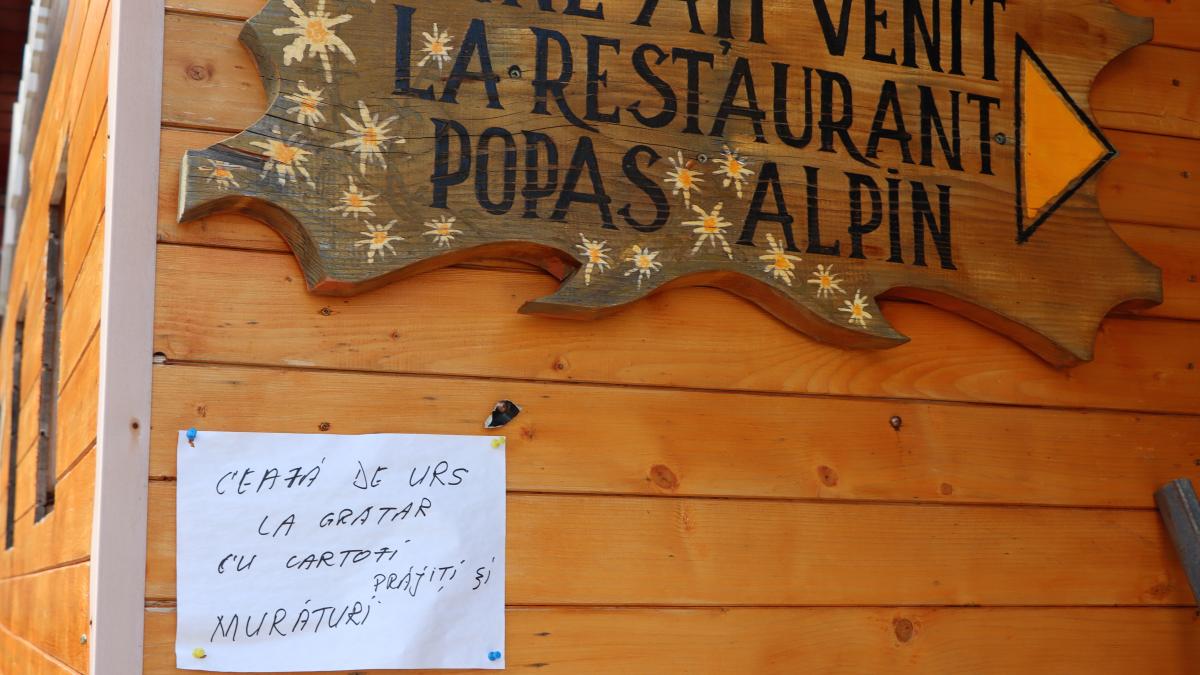 AȚI VENIT
LA RESTAURANT
POPAS ALPIN
CEAFĂ DE URS
LA GRĂTAR
CU CARTOFI
PRĂJIȚI ȘI
MURĂTURI